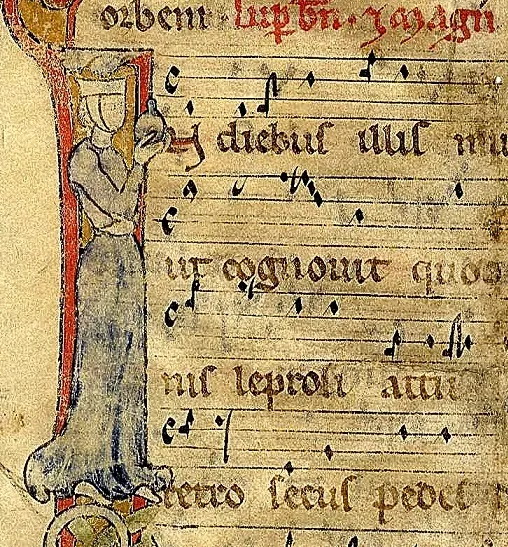 orbem sup bn. ⁊ magn
N diebus illis mu
ut cognouit quod
nis leprosi attu
retro secus pedes